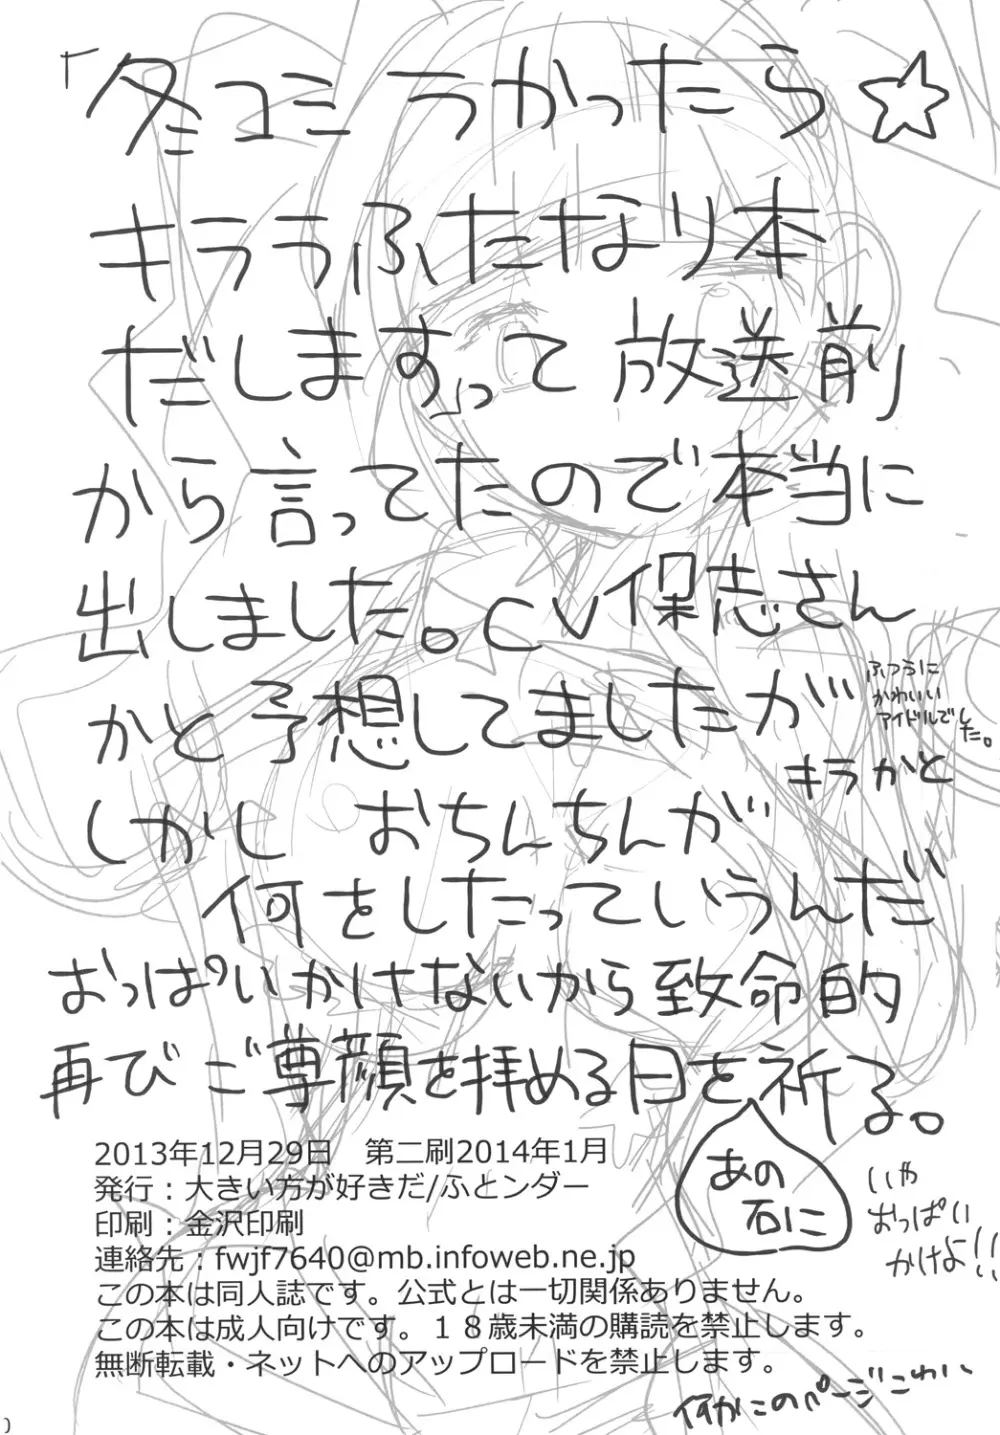 「冬コミ うかったら☆
キラうふたなり本
だします」って 放送前
から言ってたので本当に
出しました。CV保志さん
かと予想してましたが
ふつうに
かわいい
アイドルで
した。
キラかと
しかし おちんちんが
何をしたっていうんだ
おっぱいかけないから致命的
再びご尊顔を拝める日を祈る。
あの
石に
いや
おっぱい
かけよ!!
2013年12月29日 第二刷2014年1月
発行：大きい方が好きだ/ふとンダー
印刷：金沢印刷
連絡先：fwjf7640@mb.infoweb.ne.jp
この本は同人誌です。公式とは一切関係ありません。
この本は成人向けです。１８歳未満の購読を禁止します。
無断転載・ネットへのアップロードを禁止します。
何かこのページこわい